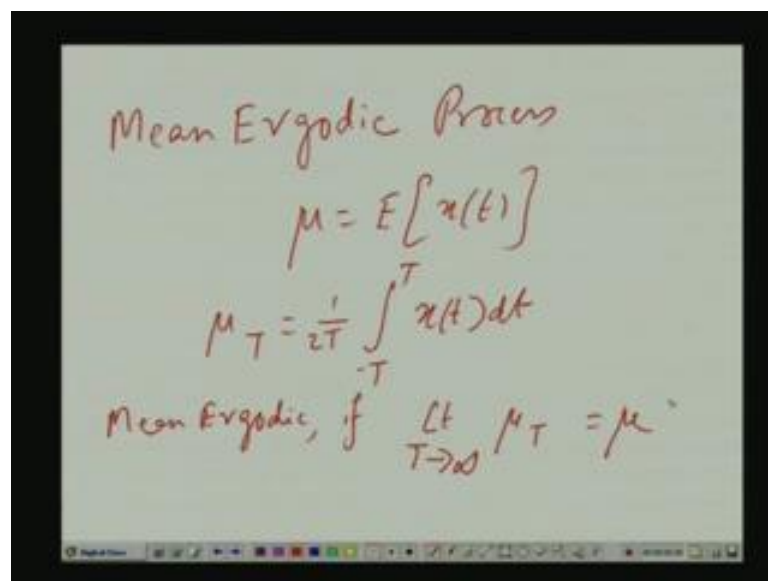 Mean Ergodic Process
μ = E[x(t)]
μ_T = 1/2T ∫_{-T}^{T} x(t)dt
Mean Ergodic, if Lt_{T→∞} μ_T = μ